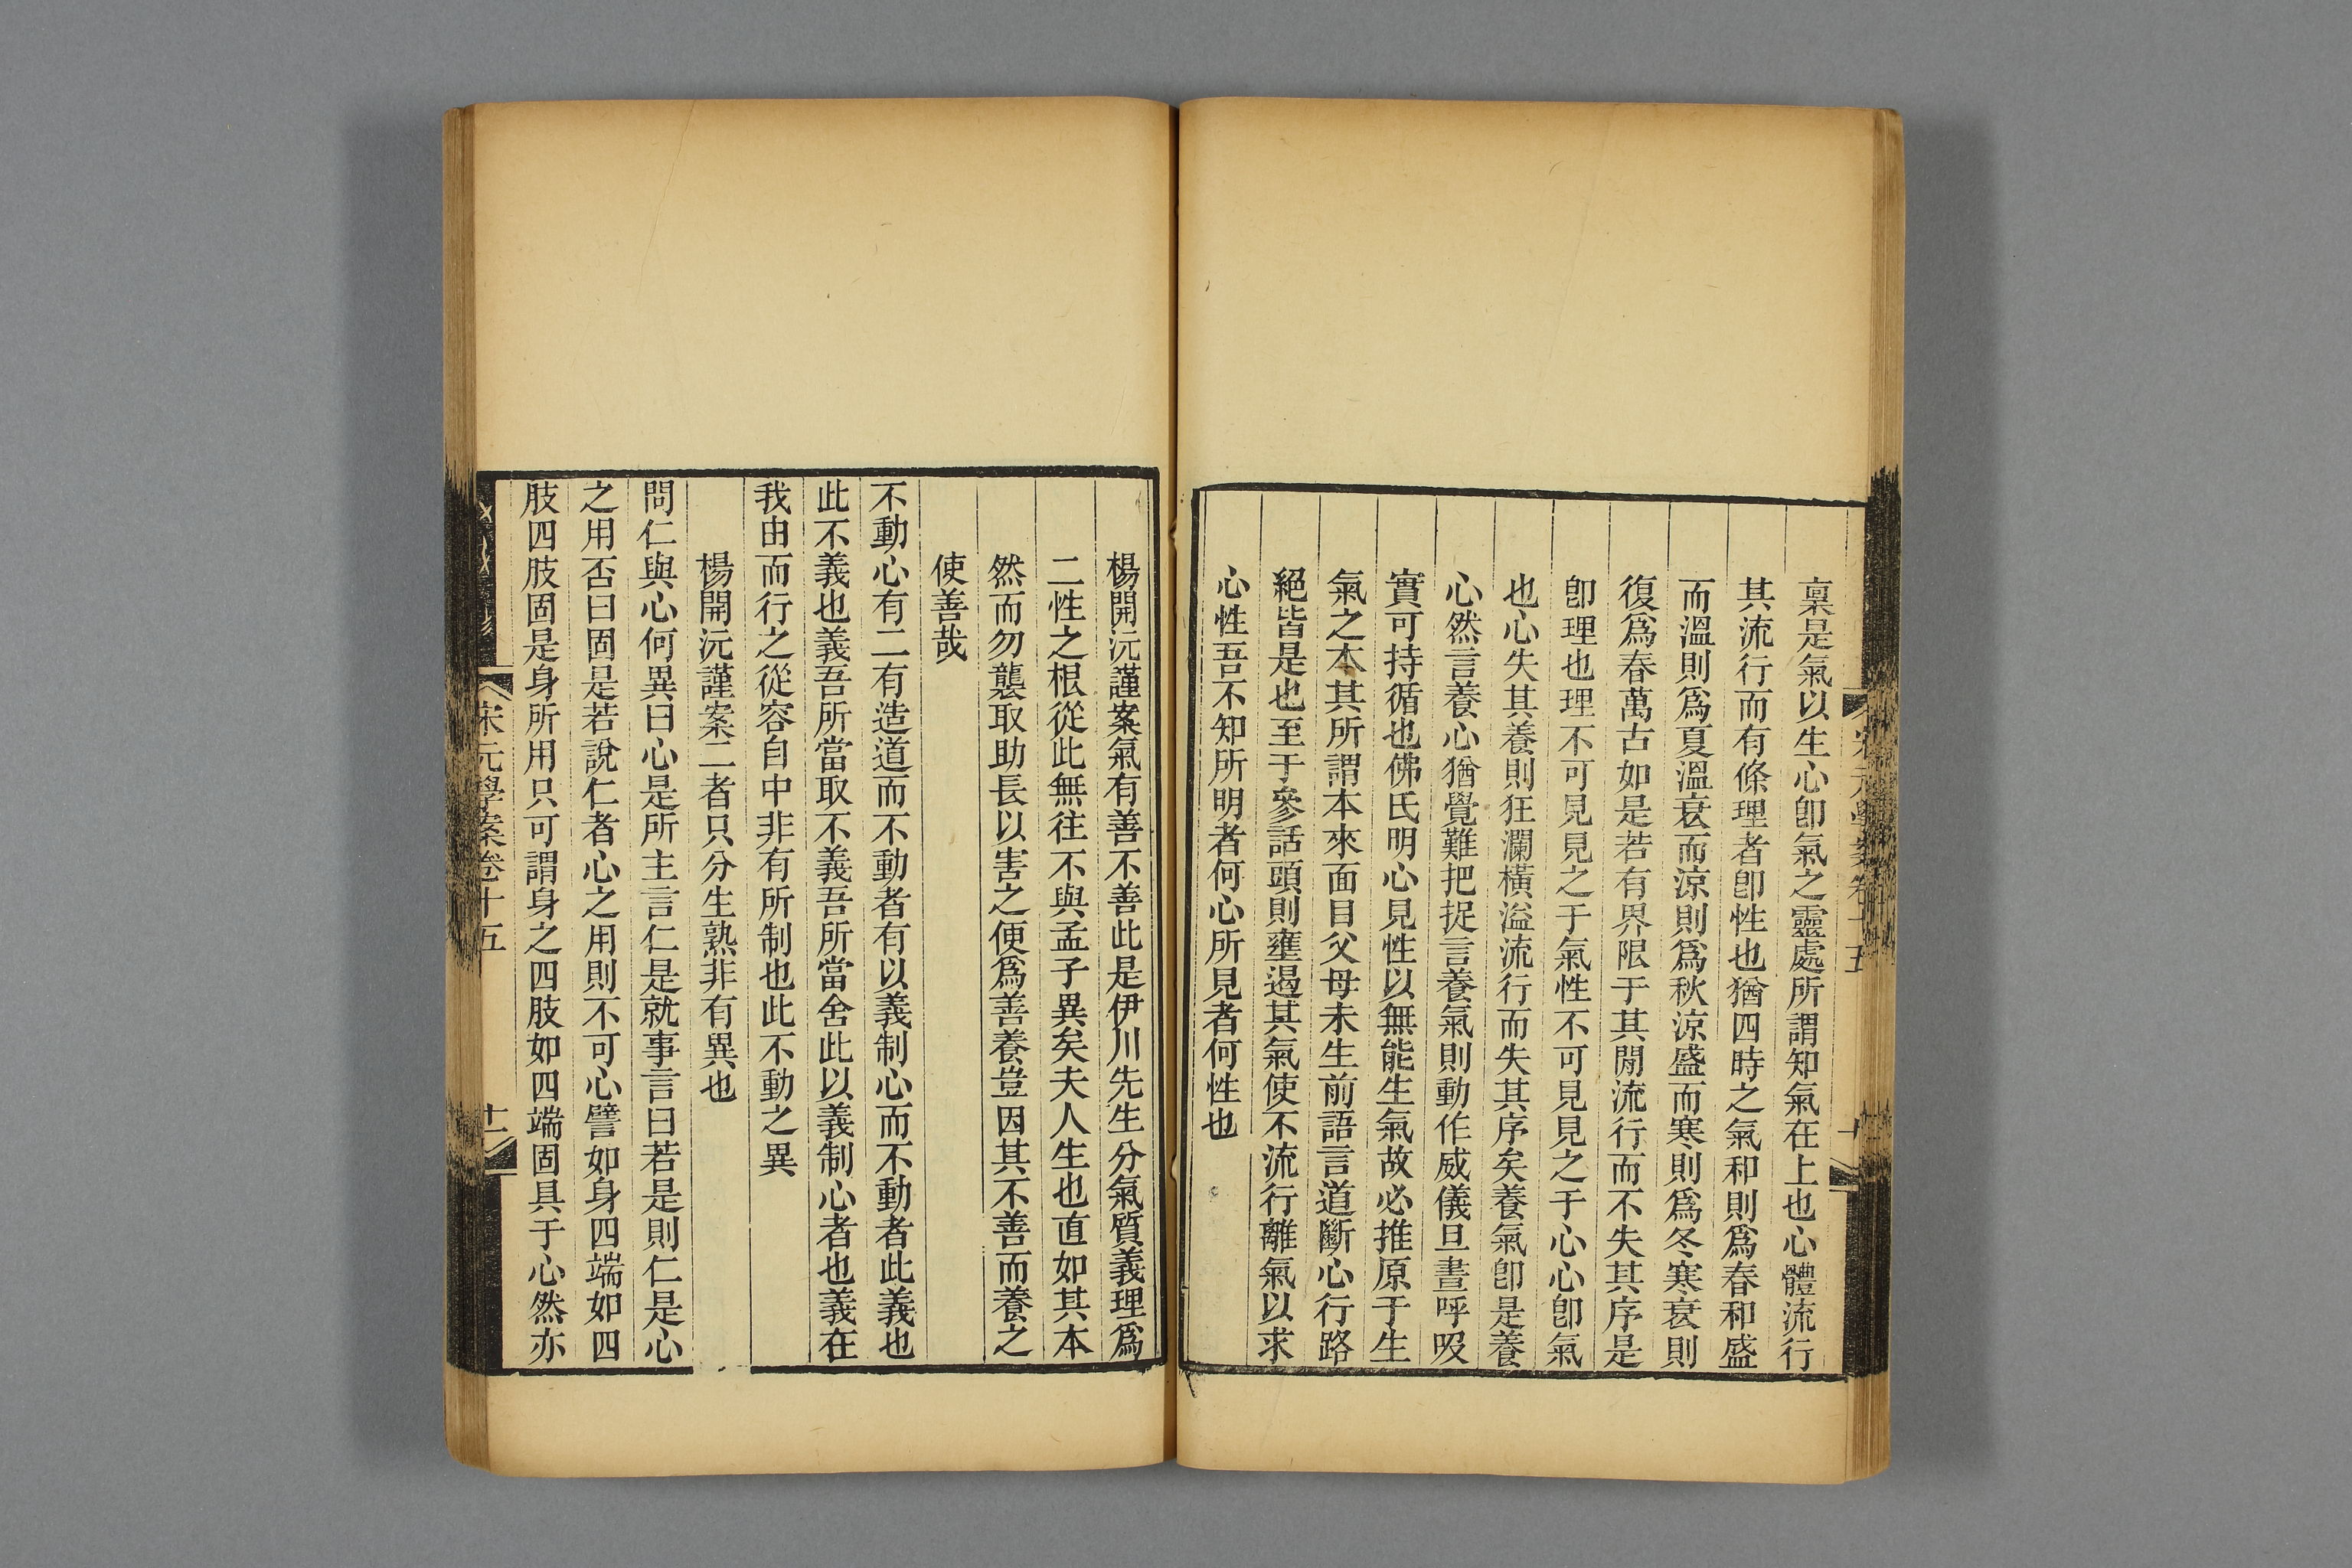 稟是氣以生心卽氣之靈處所謂知氣在上也心體流行
其流行而有條理者卽性也猶四時之氣和則爲春和盛
而溫則爲夏溫衰而涼則爲秋涼盛而寒則爲冬寒衰則
復爲春萬古如是若有界限于其閒流行而不失其序是
卽理也理不可見見之于氣性不可見見之于心心卽氣
也心失其養則狂瀾橫溢流行而失其序矣養氣卽是養
心然言養心猶覺難把捉言養氣則動作威儀旦晝呼吸
實可持循也佛氏明心見性以無能生氣故必推原于生
氣之本其所謂本來面目父母未生前語言道斷心行路
絕皆是也至于參話頭則壅遏其氣使不流行離氣以求
心性吾不知所明者何心所見者何性也
楊開沅謹案氣有善不善此是伊川先生分氣質義理爲
二性之根從此無往不與孟子異矣夫人生也直如其本
然而勿襲取助長以害之便爲善養豈因其不善而養之
使善哉
不動心有二有造道而不動者有以義制心而不動者此義也
此不義也義吾所當取不義吾所當舍此以義制心者也義在
我由而行之從容自中非有所制也此不動之異
楊開沅謹案二者只分生熟非有異也
問仁與心何異曰心是所主言仁是就事言曰若是則仁是心
之用否曰固是若說仁者心之用則不可心譬如身四端如四
肢四肢固是身所用只可謂身之四肢如四端固具于心然亦
宋元學案卷十五
十一